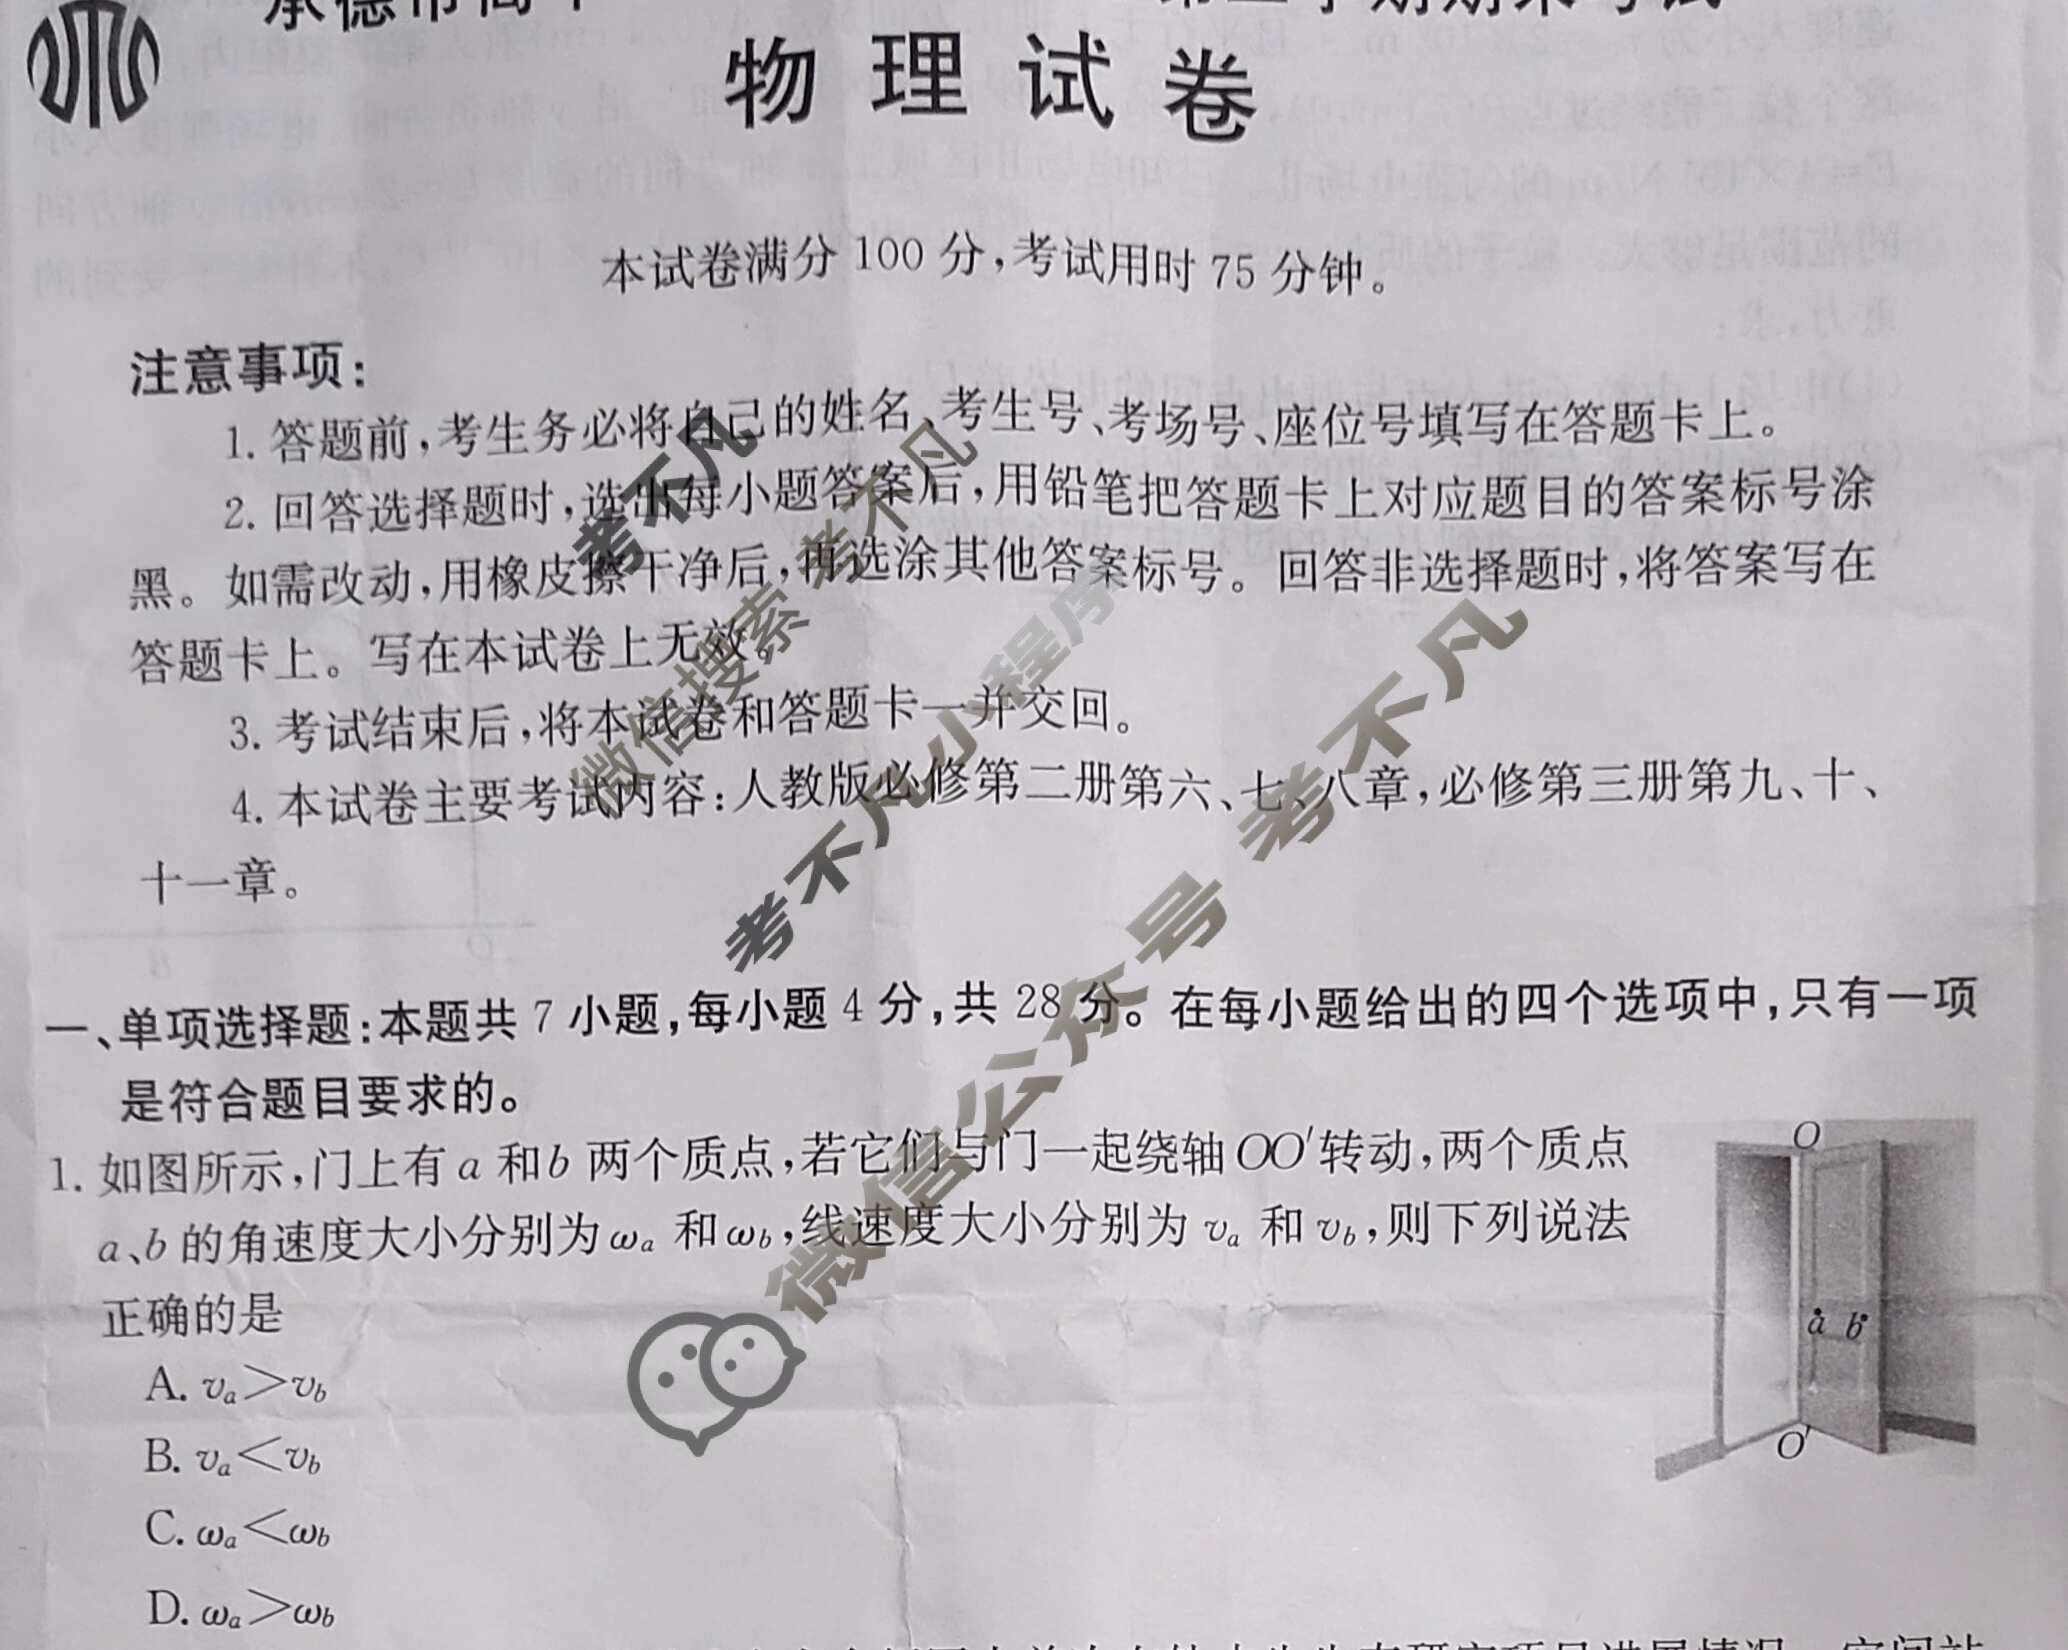 物理试卷
本试卷满分100分,考试用时75分钟。
注意事项:
1. 答题前,考生务必将自己的姓名、考生号、考场号、座位号填写在答题卡上。
2. 回答选择题时,选出每小题答案后,用铅笔把答题卡上对应题目的答案标号涂
黑。如需改动,用橡皮擦干净后,再选涂其他答案标号。回答非选择题时,将答案写在
答题卡上。写在本试卷上无效。
3. 考试结束后,将本试卷和答题卡一并交回。
4. 本试卷主要考试内容:人教版必修第二册第六、七、八章,必修第三册第九、十、
十一章。
一、单项选择题:本题共7小题,每小题4分,共28分。在每小题给出的四个选项中,只有一项
是符合题目要求的。
1. 如图所示,门上有a和b两个质点,若它们与门一起绕轴OO′转动,两个质点
a、b的角速度大小分别为ωa和ωb,线速度大小分别为va和vb,则下列说法
正确的是
A. va>vb
B. va<vb
C. ωa<ωb
D. ωa>ωb
O
a b
O′
考不凡
微信搜索 考不凡
考不凡小程序
微信公众号 考不凡